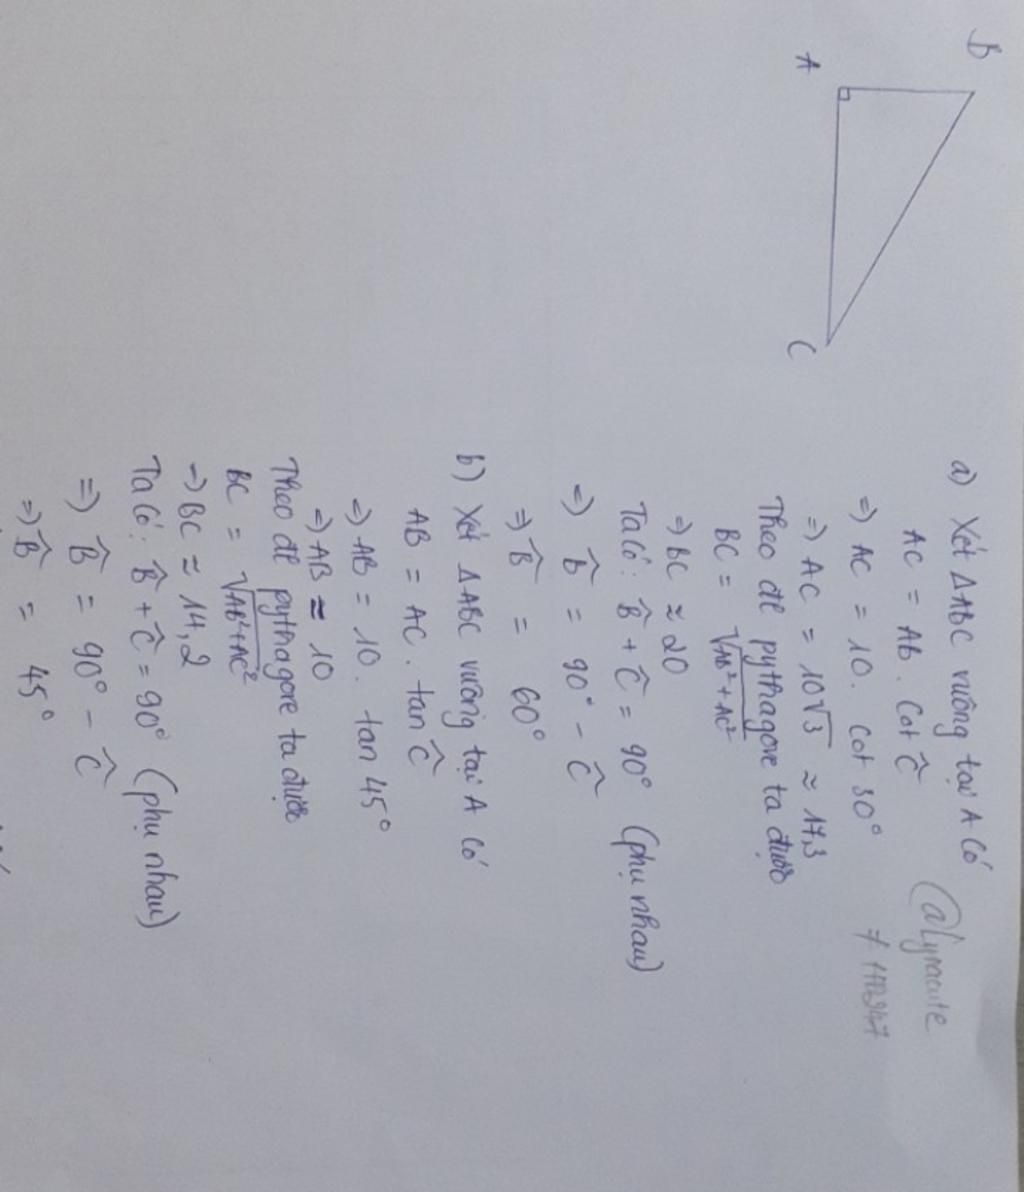 B
A
C
a) Xét ΔABC vuông tại A có
AC = AB . Cot Ĉ
=) AC = 10 . Cot 30°
=) AC = 10√3 ≈ 17,3
Theo đl pythagore ta được
BC = √AB²+AC²
=) BC ≈ 20
Ta có : B̂ + Ĉ = 90° (phụ nhau)
=) B̂ = 90° - Ĉ
=) B̂ = 60°
b) Xét ΔABC vuông tại A có
AB = AC . tan Ĉ
=) AB = 10 . tan 45°
=) AB ≈ 10
Theo đl pythagore ta được
BC = √AB²+AC²
=) BC ≈ 14,2
Ta có : B̂ + Ĉ = 90° (phụ nhau)
=) B̂ = 90° - Ĉ
=) B̂ = 45°
@lynacute